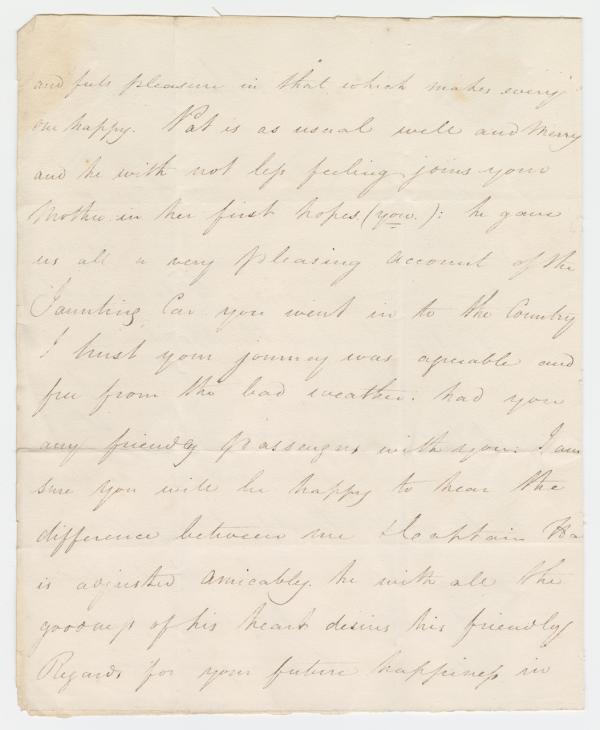 and feels pleasure in that which makes every
one happy. Pat is as usual well and Merry
and he with not less feeling joins your
Mother in her first hopes (you.): he gave
us all a very pleasing account of the
Jaunting Car you went in to the Country
I trust your journey was agreable and
free from the bad weather. had you
any friendly passengers with you. I am
sure you will be happy to hear the
difference between me & Captain
is adjusted amicably. he with all the
goodness of his heart desires his friendly
Regards for your future happiness in